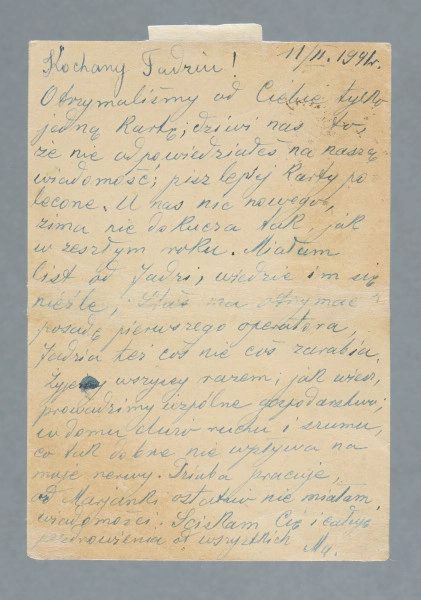 11/II. 1941r.
Kochany Tadziu!
Otrzymaliśmy od Ciebie tylko
jedną kartę; dziwi nas to,
że nie odpowiedziałeś na naszą
wiadomość; pisz lepiej karty po-
lecone. U nas nic nowego,
zima nie dokucza tak, jak
w zeszłym roku. Miałam
list od Jadzi, wiedzie im się
nieźle, Staś ma otrzymać
posadę pierwszego operatora,
Jadzia też coś nie coś zarabia.
Żyjemy wszyscy razem, jak wiesz,
prowadzimy wspólne gospodarstwo,
w domu dużo ruchu i szumu,
co tak dobrze nie wpływa na
moje nerwy. pracuje,
od ostatnio nie miałam
wiadomości. Ściskam Cię i całuję
pozdrowienia od wszystkich